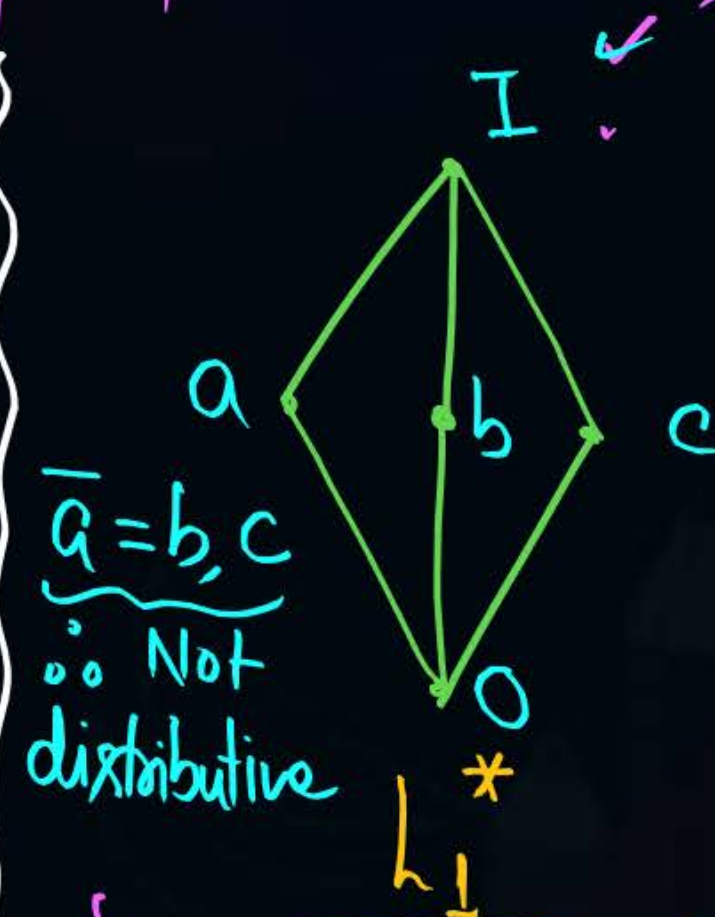 I
a
b
c
a̅ = b, c
∴ Not
distributive
O
L₁*